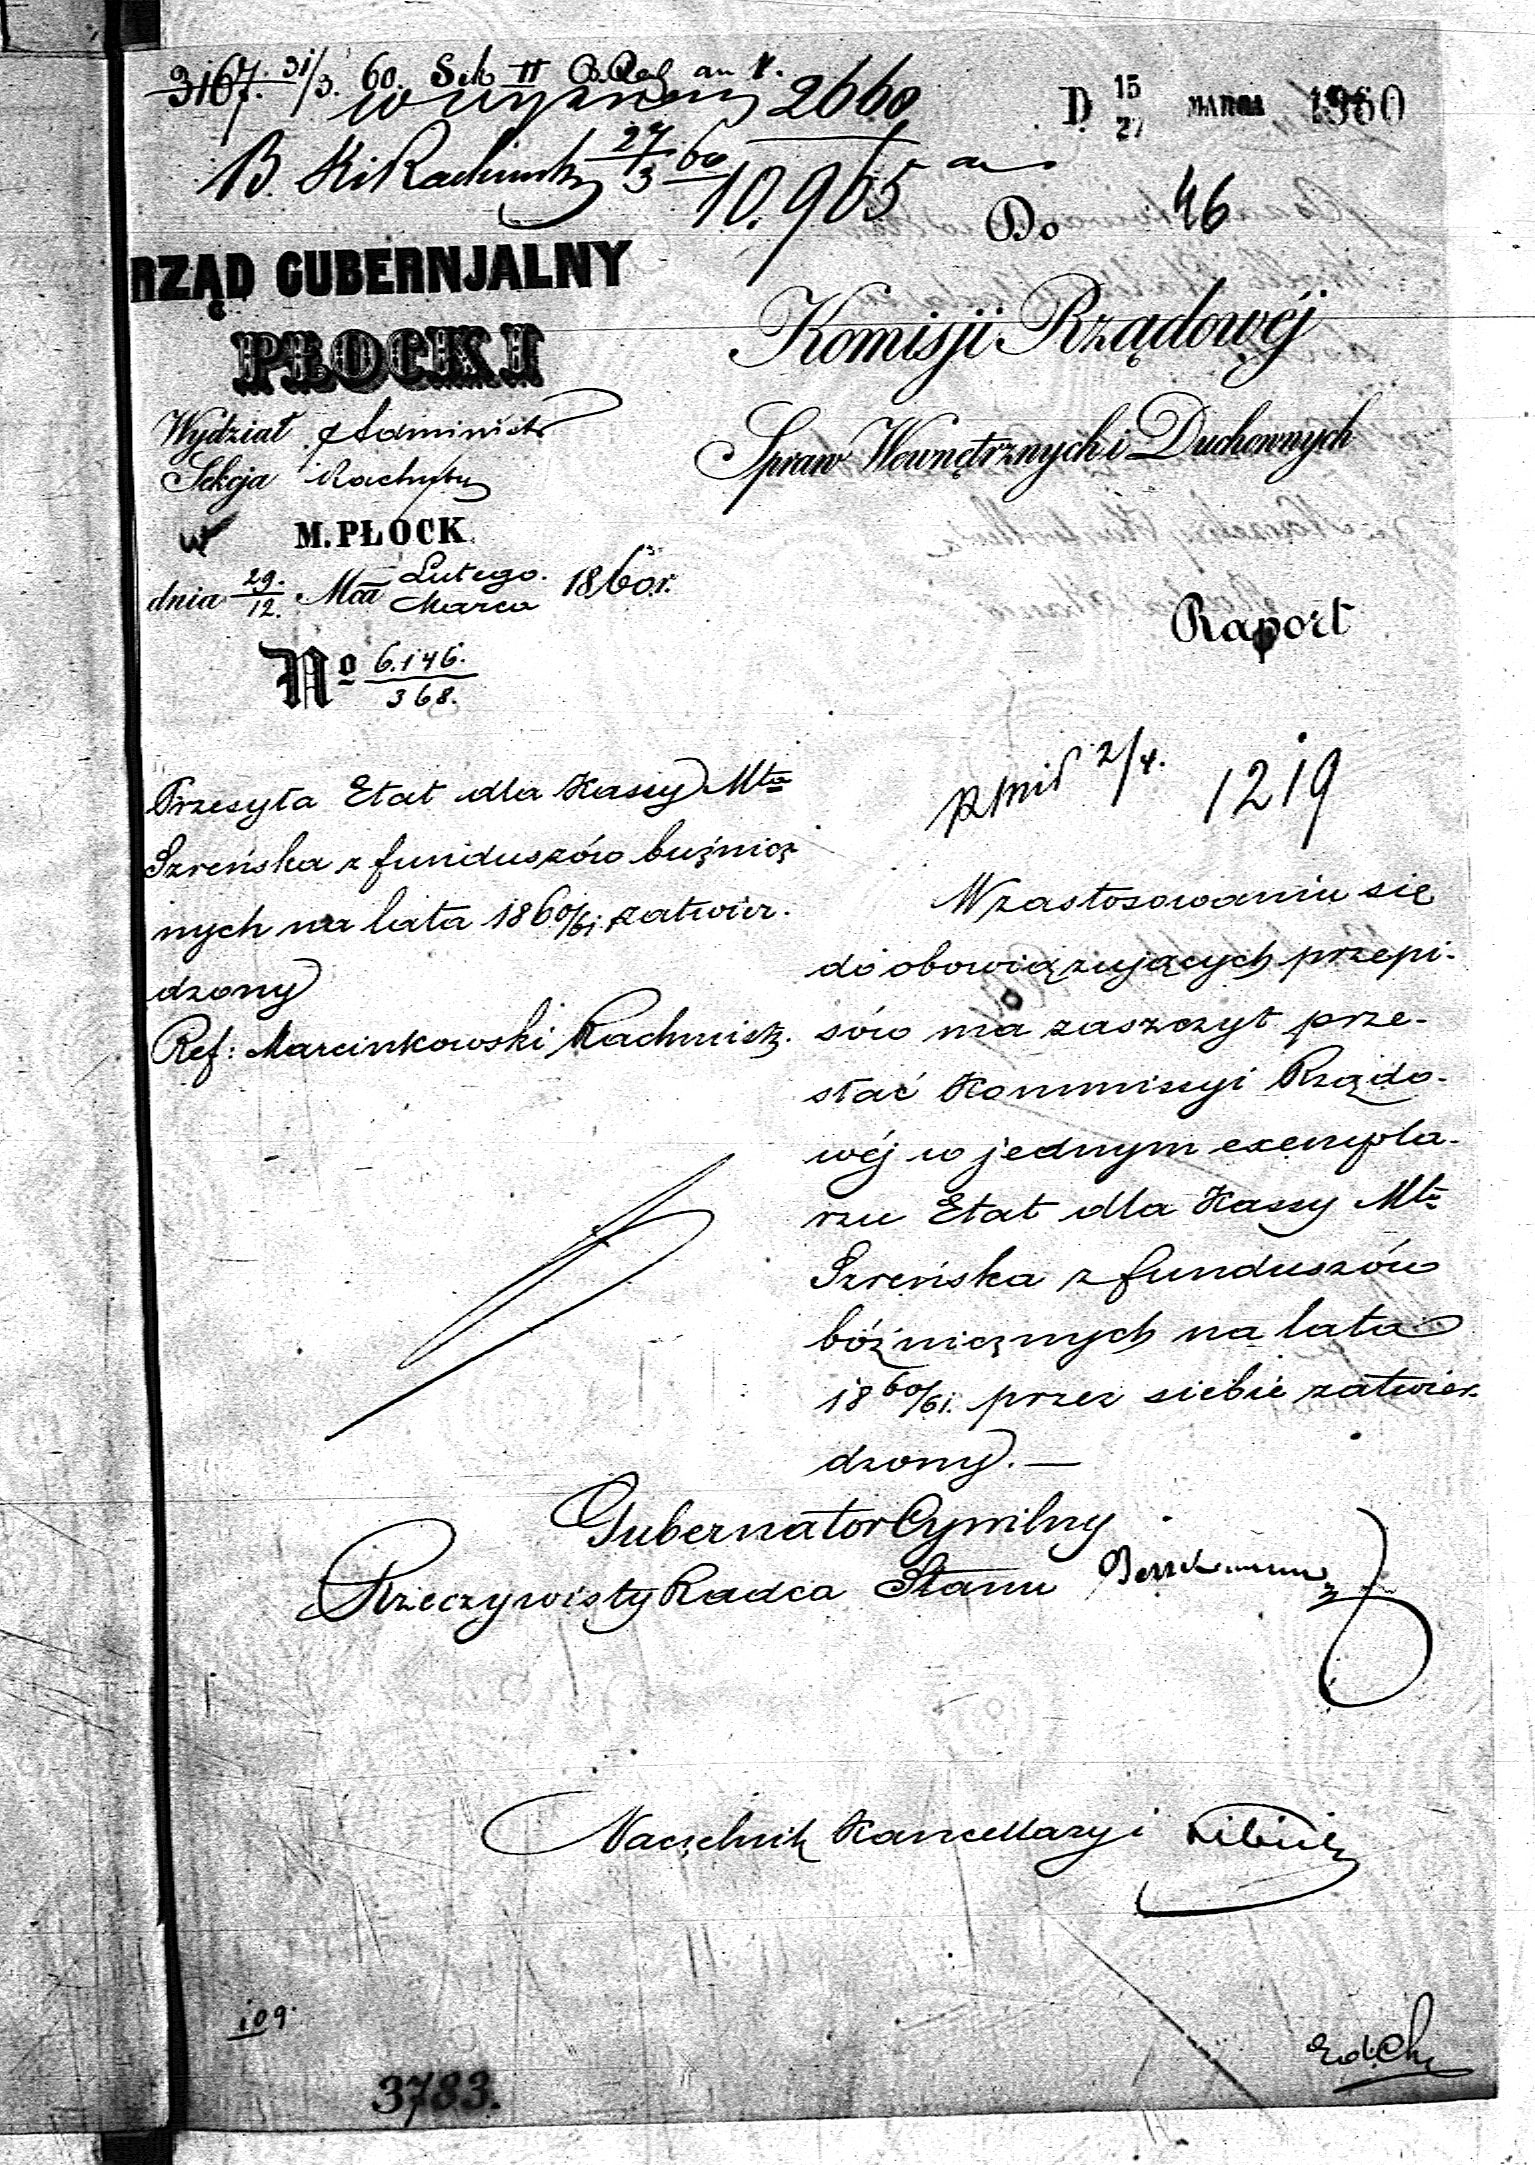 3167. 31/3. 60. Sek II
2660
B. Ki Rachunk 27/3 60 10.965
D 15/27 MARCA 1860
Do 46
RZĄD GUBERNJALNY
PŁOCKI
Komisji Rządowéj
Spraw Wewnętrznych i Duchownych
Wydział Administr
Sekcja Rachuby
w M. PŁOCK
dnia 29./12. Mca Lutego./Marca 1860 r.
Raport
No 6.146./368.
Przesyła Etat dla Kassy Mta
Szreńska z funduszów bużnicz
nych na lata 1860/61. zatwier.
dzony
Ref: Marcinkowski Rachmistz.
2/4. 1219
W zastosowaniu się
do obowiązujących przepi-
sów ma zaszczyt prze-
słać Kommissyi Rządo-
wéj w jednym exempla-
rzu Etat dla Kassy Mta
Szreńska z funduszów
bóżnicznych na lata
1860/61. przez siebie zatwier-
dzony. —
Gubernator Cywilny
Rzeczywisty Radca Stanu
Naczelnik Kancellaryi
109.
3783.